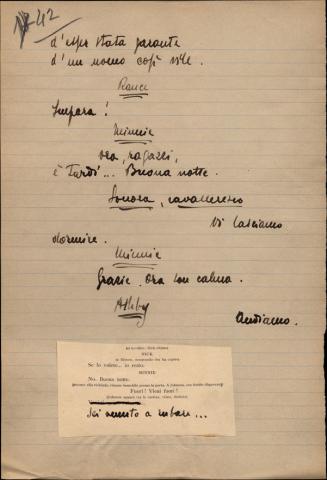 42
d'esser stata garante
d'un uomo così vile.
Rance
Impara!
Minnie
Ora, ragazzi,
è tardi... Buona notte.
Sonora, cavalleresco
Vi lasciamo
dormire.
Minnie
Grazie. Ora son calma.
Ashby
Andiamo.
NICK
Se lo volete... io resto.
MINNIE
No. Buona notte.
Fuori! Vieni fuori!
Sei venuto a rubare...